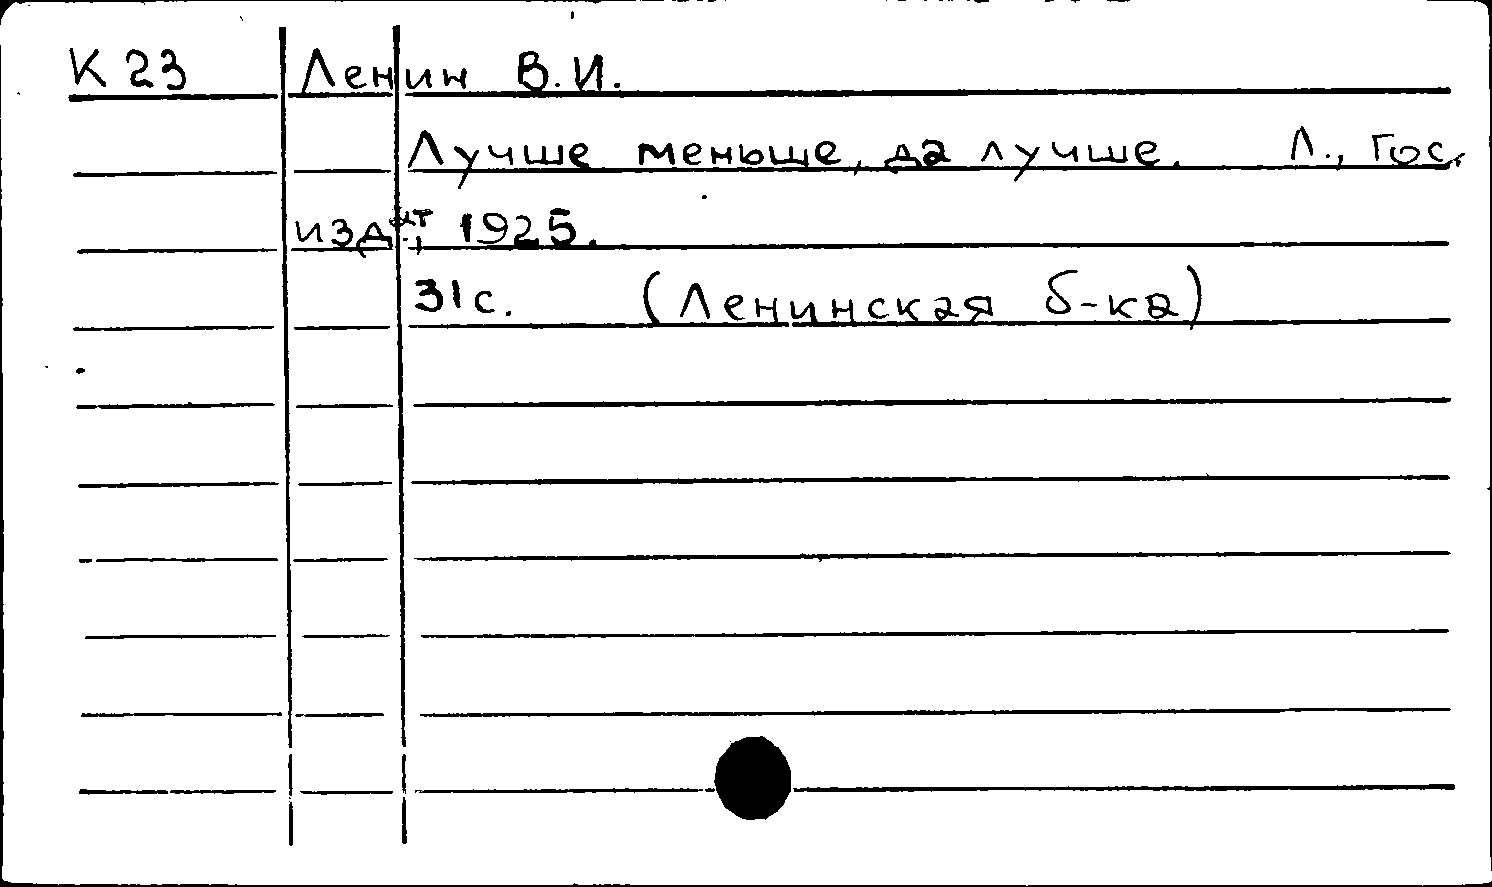 К 23 Ленин В.И.
Лучше меньше, да лучше. Л., Гос.
издат, 1925.
31 с. (Ленинская б-ка)